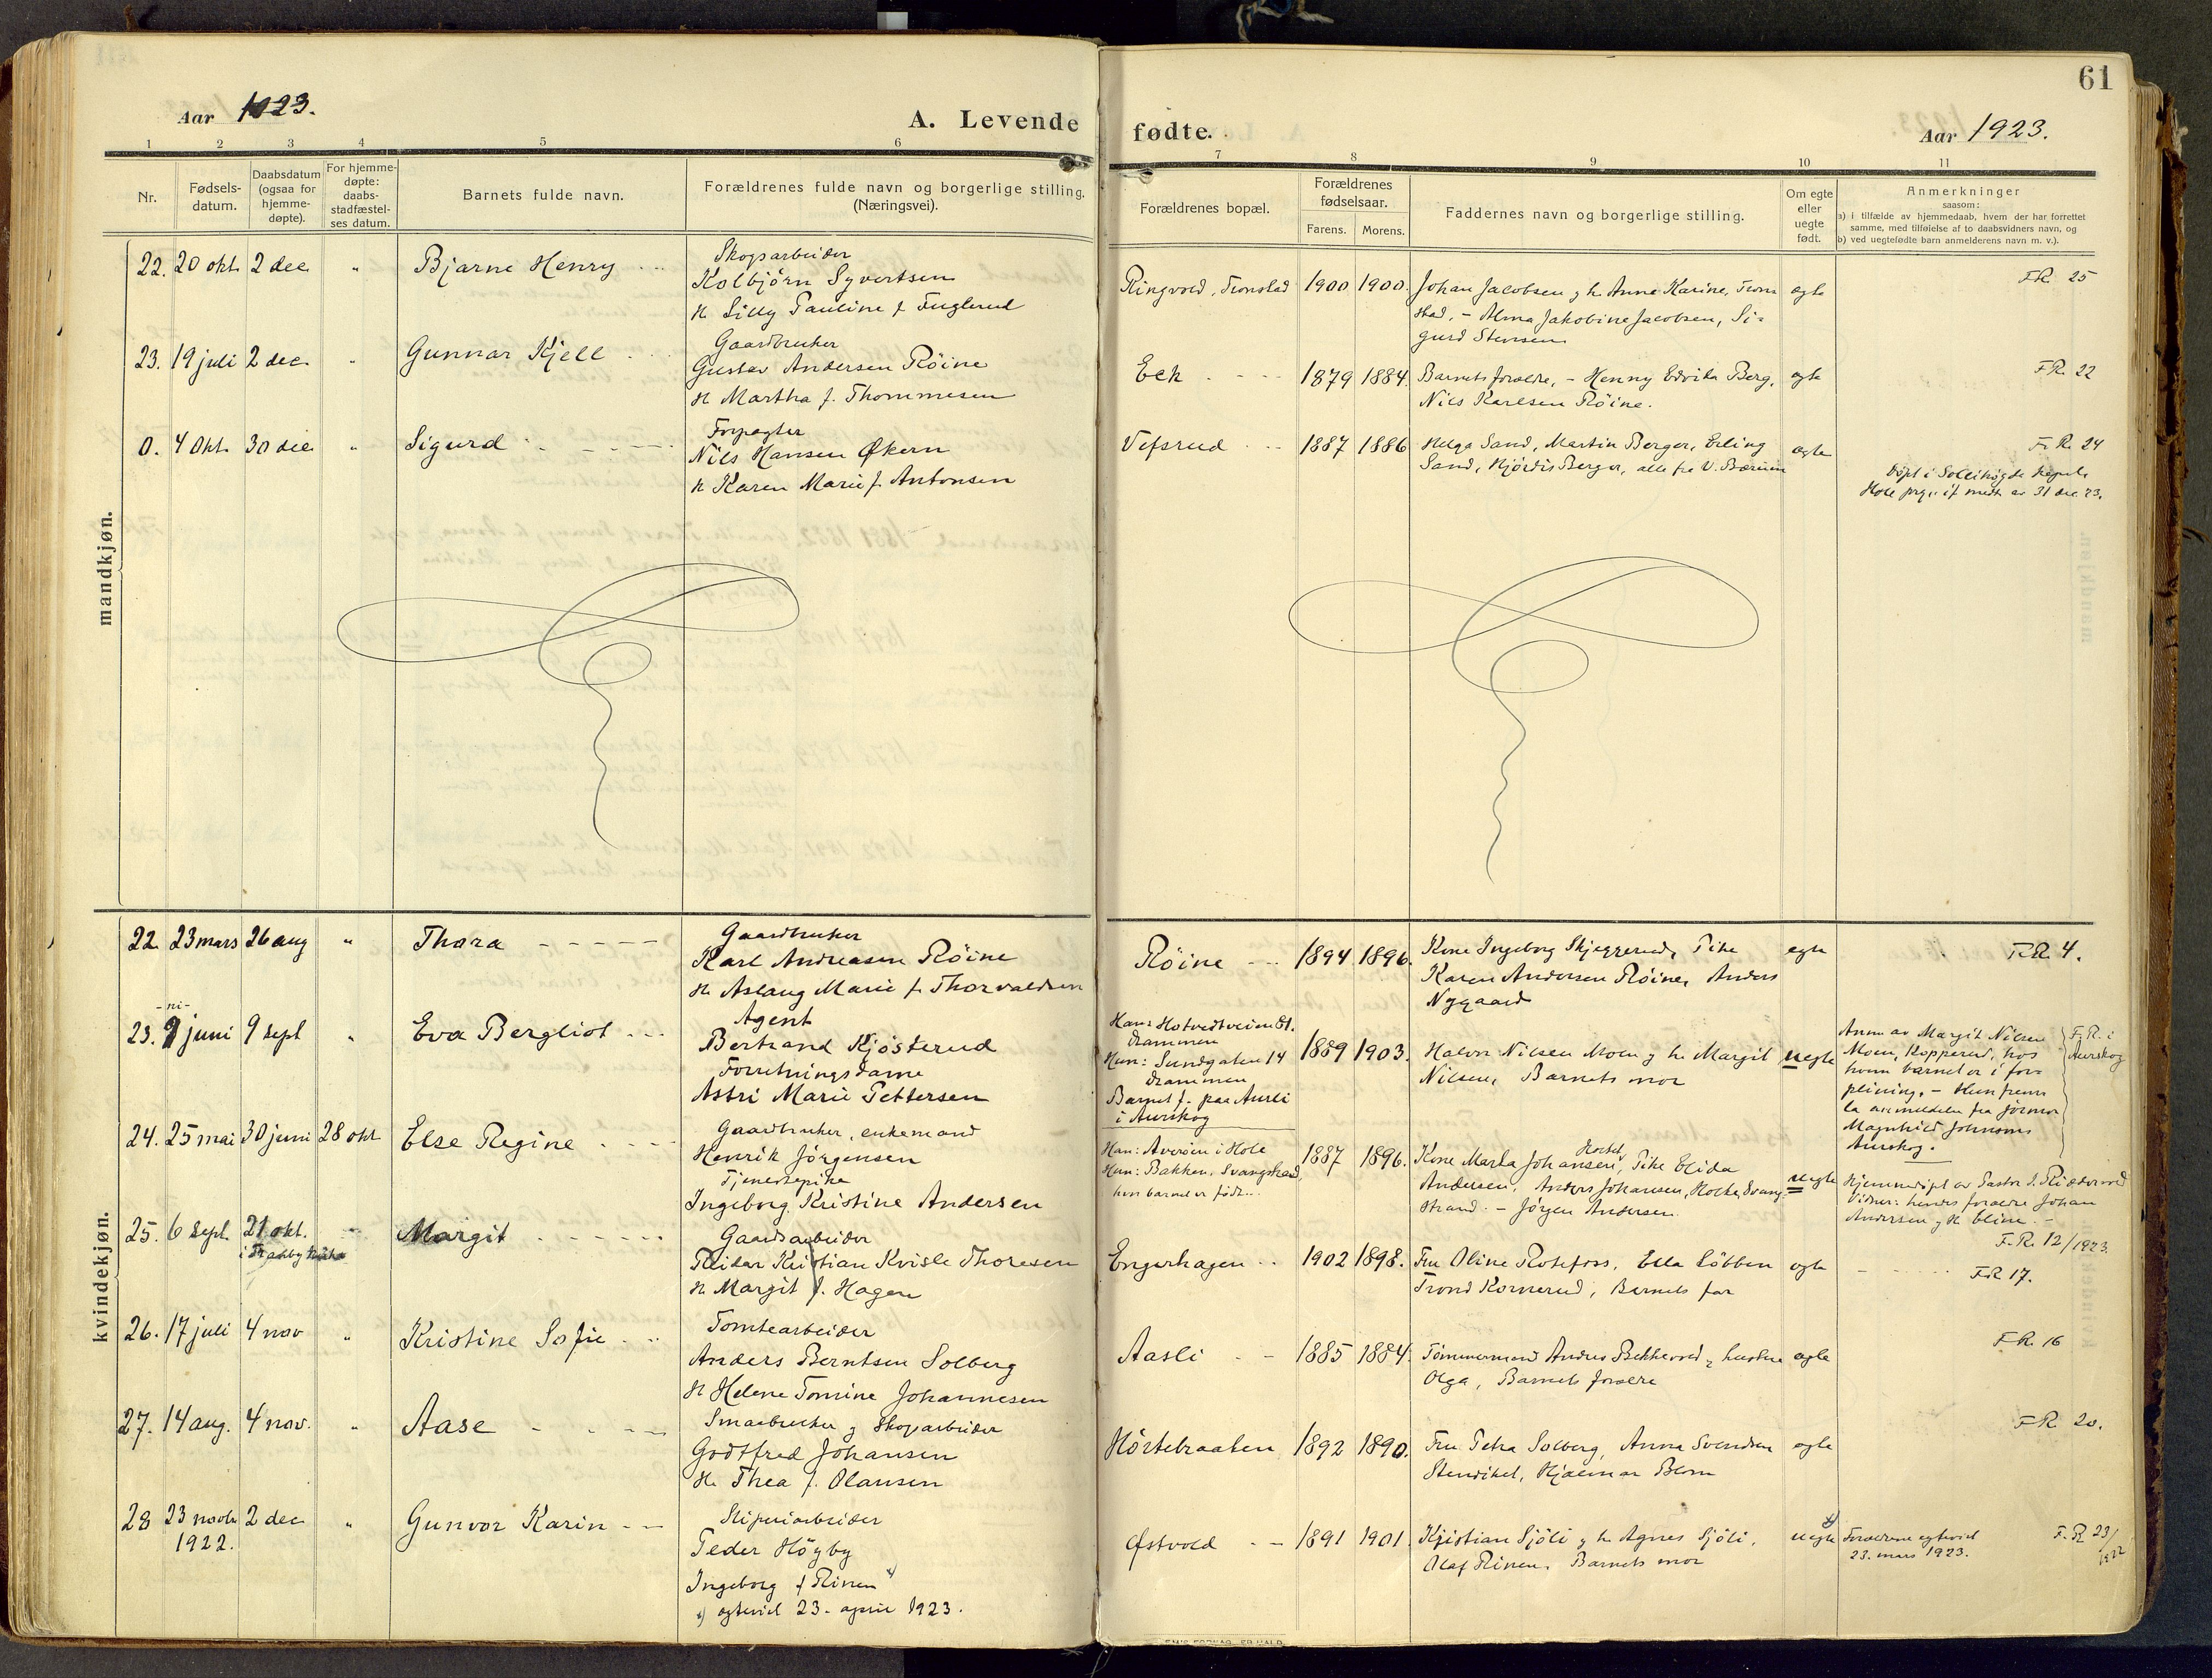 61
Aar 1923.
A. Levende fødte.
Aar 1923.
1 2 3 4 5 6 7 8 9 10 11
Nr.
Fødsels-
datum.
Daabsdatum
(ogsaa for
hjemme-
døpte).
For hjemme-
døpte:
daabs-
stadfæstel-
ses datum.
Barnets fulde navn.
Forældrenes fulde navn og borgerlige stilling.
(Næringsvei).
Forældrenes bopæl.
Forældrenes
fødselsaar.
Farens. Morens.
Faddernes navn og borgerlige stilling.
Om egte
eller
uegte
født.
Anmerkninger
saasom:
a) i tilfælde av hjemmedaab, hvem der har forrettet
samme, med tilføielse af to daabsvidners navn, og
b) ved uegtefødte barn anmelderens navn m. v.).
mandkjøn.
22. 20 okt. 2 dec " Bjarne Henry
Skogsarbeider
Kolbjörn Syvertsen
H. Lilly Pauline f. Fuglerud
Ringvold, Tronstad 1900 1900.
Johan Jacobsen og h. Anne Karine, Tron
stad, – Alma Jakobine Jacobsen, Si-
gurd Stensen
egte
F.R. 25
23. 19 juli 2 dec. " Gunnar Kjell
Gaardbruker
Gustav Andersen Röine
H. Martha f. Thommesen
Eek 1879 1884.
Barnets foreldre, – Henny Edvika Berg,
Nils Karlsen Röine.
egte
F.R. 22
0. 4 okt. 30 dec " Sigurd
Forpagter
Nils Hansen Økern
H. Karen Marie f. Antonsen
Vefsrud 1887 1886
Helga Sand, Martin Berger, Erling
Sand, Hjördis Berger, alle fra V. Bærum
egte
F.R. 24
Döpt i Sollihögda kapel,
Hole prg. if. medd. av 31 dec 23.
kvindekjøn.
22. 23 mars 26 aug " Thora
Gaardbruker
Karl Andreasen Röine
H. Aslaug Marie f. Thorvaldsen
Röine 1894 1896.
Kone Ingeborg Skjeggerud, Pike
Karen Andersen Röine, Anders
Nygaard
egte
F.R. 4.
-ni-
23. 9 juni 9 sept " Eva Bergliot
Agent
Bertrand Kjösterud
Forretningsdame
Astri Marie Pettersen
Han: Hotvedtveien 51.
Drammen
Hun: Sundgaten 14
Drammen
Barnet f. paa Aursli
i Aurskog
1889 1903.
Halvor Nilsen Moen og h. Margit
Nilsen, Barnets mor
uegte
Anm. av Margit Nilsen
Moen, Kopperud, hos
hvem barnet er i for-
pleining. – Hun frem
la anmeldelse fra jormor
Magnhild Johnsens
Aurskog.
F.R. i
Aurskog
24. 25 mai 30 juni 28 okt Else Regine
Gaardbruker, enkemand
Henrik Jörgensen
Tjenestepike
Ingeborg Kristine Andersen
Han: Averöen i Hole
Hun: Bakken, Svangstrand,
hvor barnet er födt.
1887 1896.
Kone Marta Johansen, Pike Elida
Andersen, Anders Johansen, Holte, Svang-
strand. – Jörgen Andersen.
uegte
Hjemmedöpt av Pastor
Vidner: hendes foreldre Johan
Andersen og H. Eline. –
F.R. 12/1923.
25. 6 sept. 21 okt. Margit
Gaardsarbeider
Reidar Kristian Kvisle Thoresen
H. Margit f. Hagen
Engerhagen 1902 1898.
Fru Oline Rosefoss, Ella Löbben
Trond Kornerud, Barnets far
egte
F.R. 17.
26. 17 juli 4 nov " Kristine Sofie
Tomtearbeider
Anders Berntsen Solberg
H. Helene Tomine Johannesen
Aasli 1885 1884.
Tömmermand Anders Bekkevold og hustru
Olga, Barnets foreldre
egte
F.R. 16
27. 14 aug. 4 nov. " Aase
Smaabruker og Skogsarbeider
Godtfred Johansen
H. Thea f. Olausen
Hörtebraaten 1892 1890.
Fru Petra Solberg, Anna Svendsen
Stendikel, Hjalmar Blom
egte
F.R. 20.
28 23 novbr 2 dec " Gunvor Karin
1922.
Sliperiarbeider
Peder Högby
Ingeborg f. Rinen x)
x) egteviet 23. april 1923.
Østvold 1891 1901.
Kristian Sjöli og h. Agnes Sjöli,
Olaf Rinen, Barnets mor
uegte x)
Foreldrene egteviet
23. mars 1923.
F.R. 23/
1922